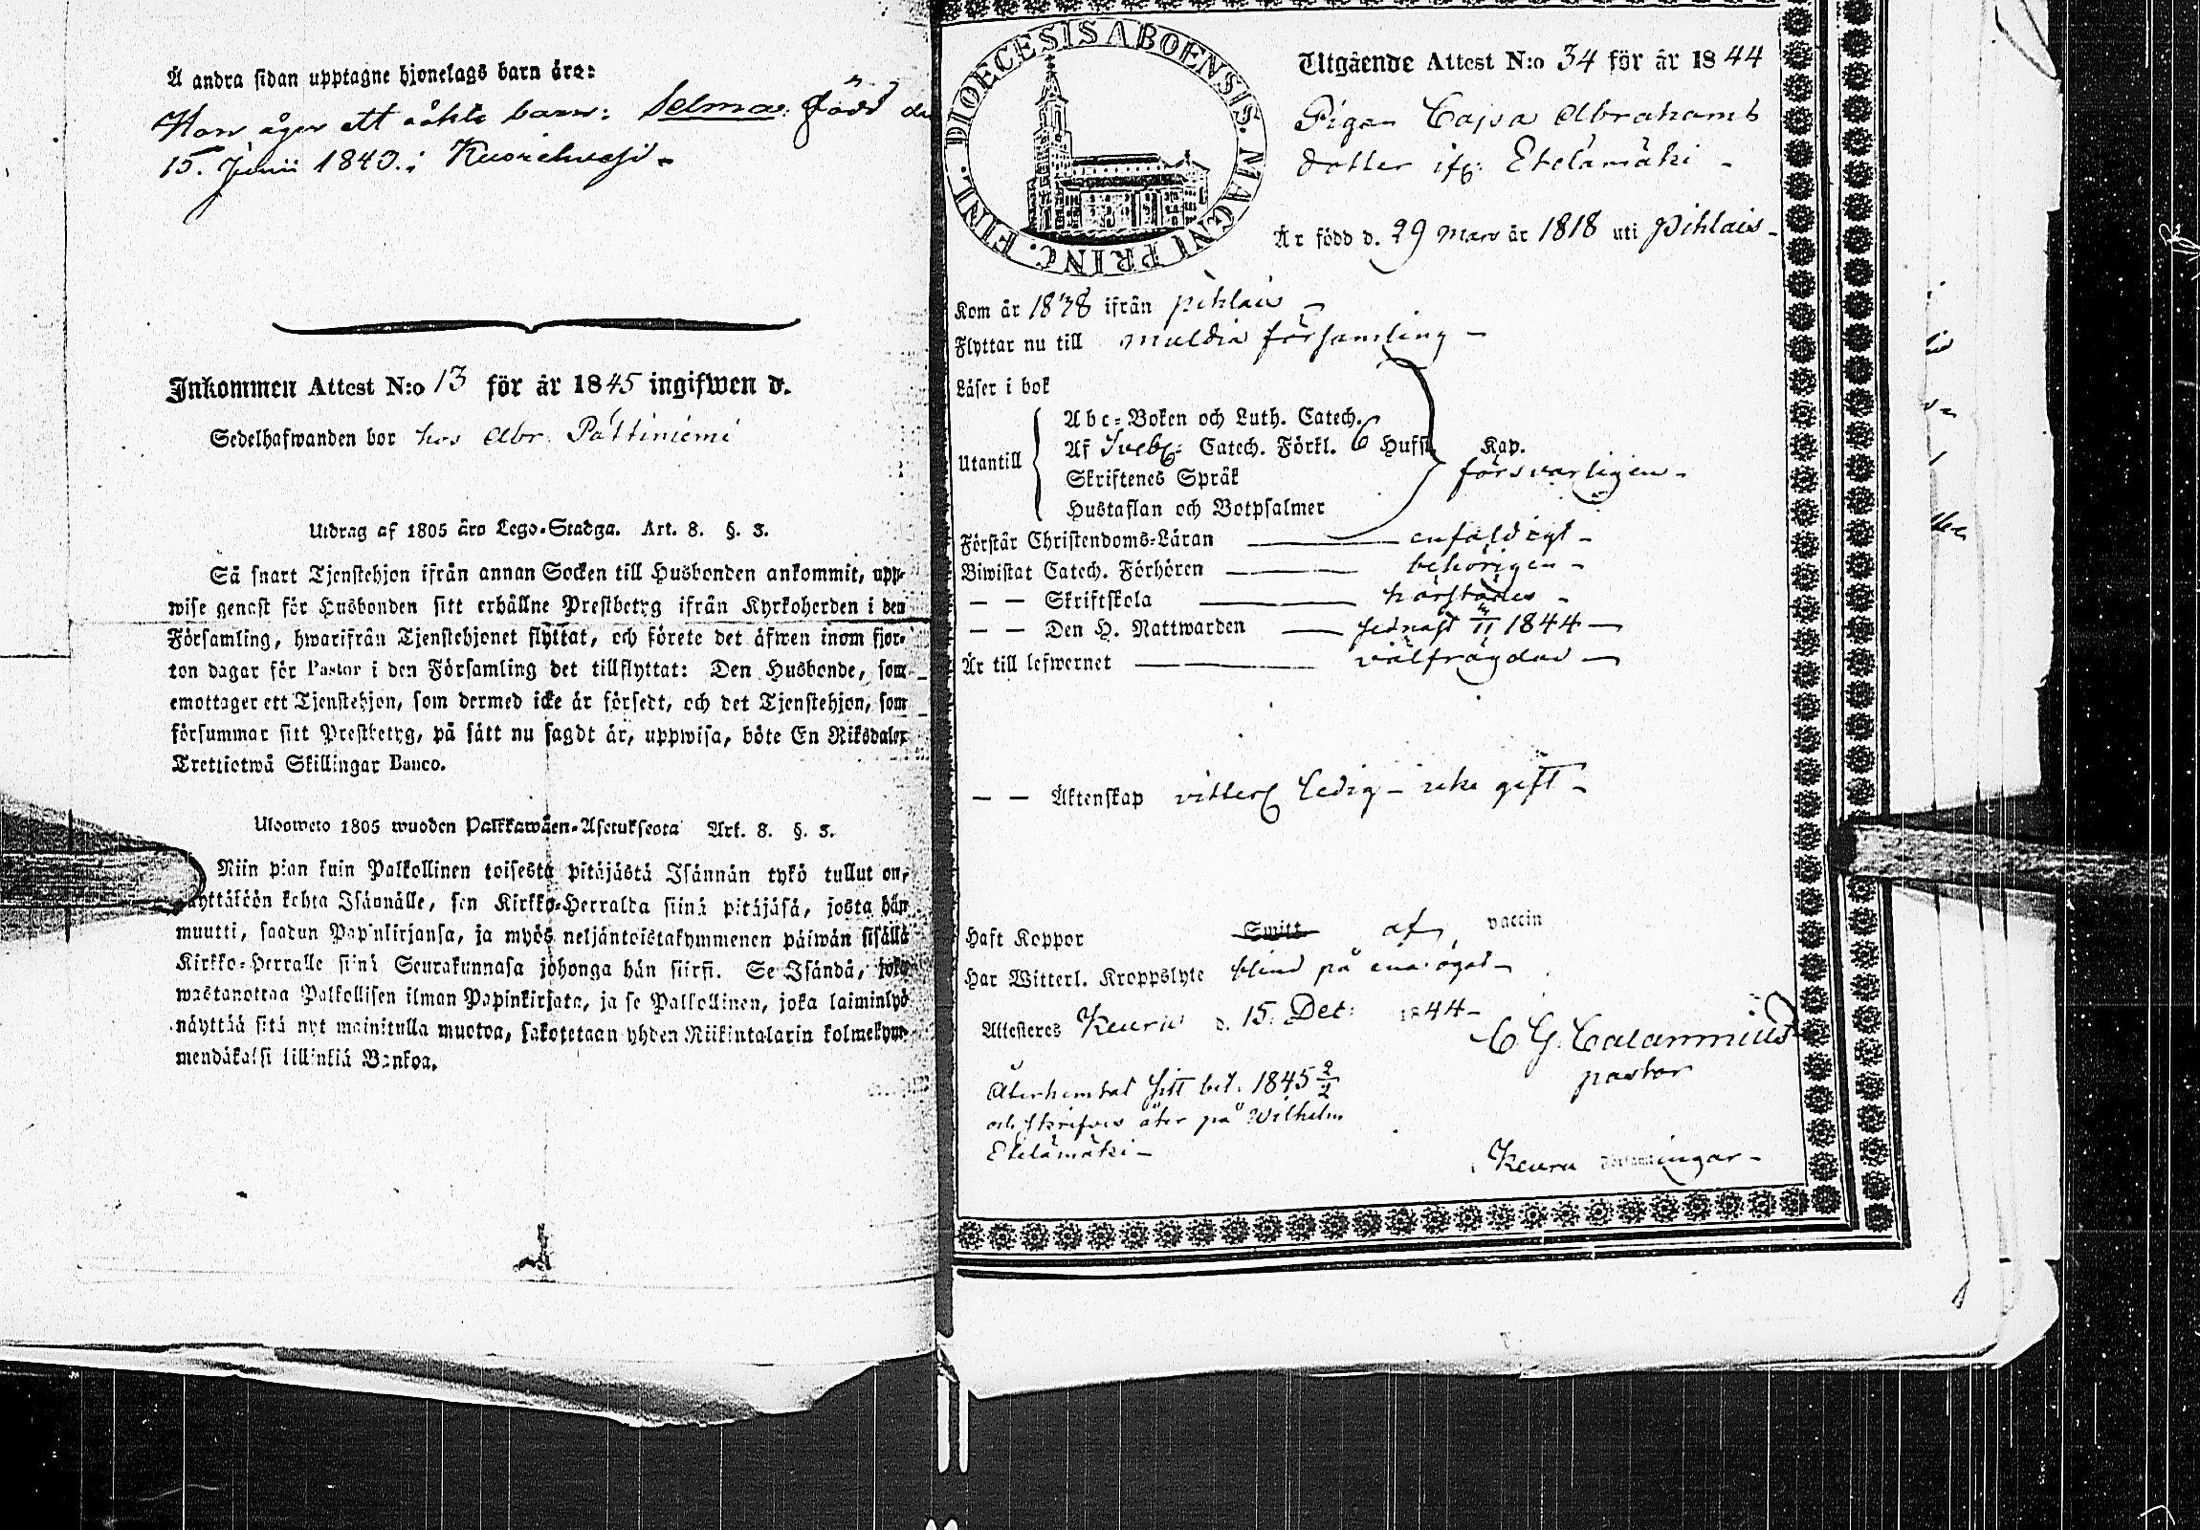 Å andra sidan upptagne hjonelags barn äro:
Hon äger ett oäkta barn: Selma. född d
15. Junii 1840. i Kuorehvesi
Inkommen Attest N:o 13 för år 1845 ingifwen d.
Sedelhafwanden bor hos Abr. Pättiniemi
Utdrag af 1805 års Lego-Stadga. Art. 8. §. 3.
Så snart Tjenstehjon ifrån annan Socken till Husbonden ankommit, upp-
wise genast för Husbonden sitt erhållne Prestbetyg ifrån Kyrkoherden i den
Församling, hwarifrån Tjenstehjonet flyttat, och förete det äfwen inom fjor-
ton dagar för Pastor i den Församling det tillflyttat: Den Husbonde, som
emottager ett Tjenstehjon, som dermed icke är försedt, och det Tjenstehjon, som
försummar sitt Prestbetyg, på sätt nu sagdt är, uppwisa, böte En Riksdaler
Trettiotwå Skillingar Banco.
Ulosweto 1805 wuoden Palkkawäen-Asetuksesta Art. 8. §. 3.
Niin pian kuin Palkollinen toisesta pitäjästä Isännän tykö tullut on,
näyttäköön kohta Isännälle, sen Kirkko-Herralda siinä pitäjäsä, josta hän
muutti, saadun Papinkirjansa, ja myös neljäntoistakymmenen päiwän sisällä
Kirkko-Herralle siinä Seurakunnasa johonga hän siirsi. Se Isändä, joka
wastanottaa Palkollisen ilman Papinkirjata, ja se Palkollinen, joka laiminlyö
näyttää sitä nyt mainitulla muotoa, sakotetaan yhden Riikintalarin kolmekym-
mendäkaksi killinkiä Bankoa.
DIOECESIS ABOENSIS. MAGNI PRINC. FINL.
Utgående Attest N:o 34 för år 1844
Pigan Cajsa Abrahams
dotter ifr. Etelämäki
Är född d. 29 mars år 1818 uti Pihlais
Kom år 1838 ifrån Pihlais
Flyttar nu till Muldia församling
Läser i bok
Utantill
Abc-Boken och Luth. Catech.
Af Svebe: Catech. Förkl. 6 Hufst. Kap.
försvarligen
Skriftenes Språk
Hustaflan och Botpsalmer
Förstår Christendoms-Läran enfaldigt
Biwistat Catech. Förhören behörigen
— — Skriftskola härstädes
— — Den H. Nattwarden sednast 1844
Är till lefwernet välfrägdad
— — Äktenskap vitterl. ledig – icke gift
Haft Koppor Smitt af vaccin
Har Witterl. Kroppslyte blind på ena ögat
Attesteres Keuru d. 15. Dec: 1844
C G. Calamnius
pastor
Återhemtat sitt bet. 1845 2/2
och skrifves åter på Wilhelm
Etelämäki
Keuru Församlingar